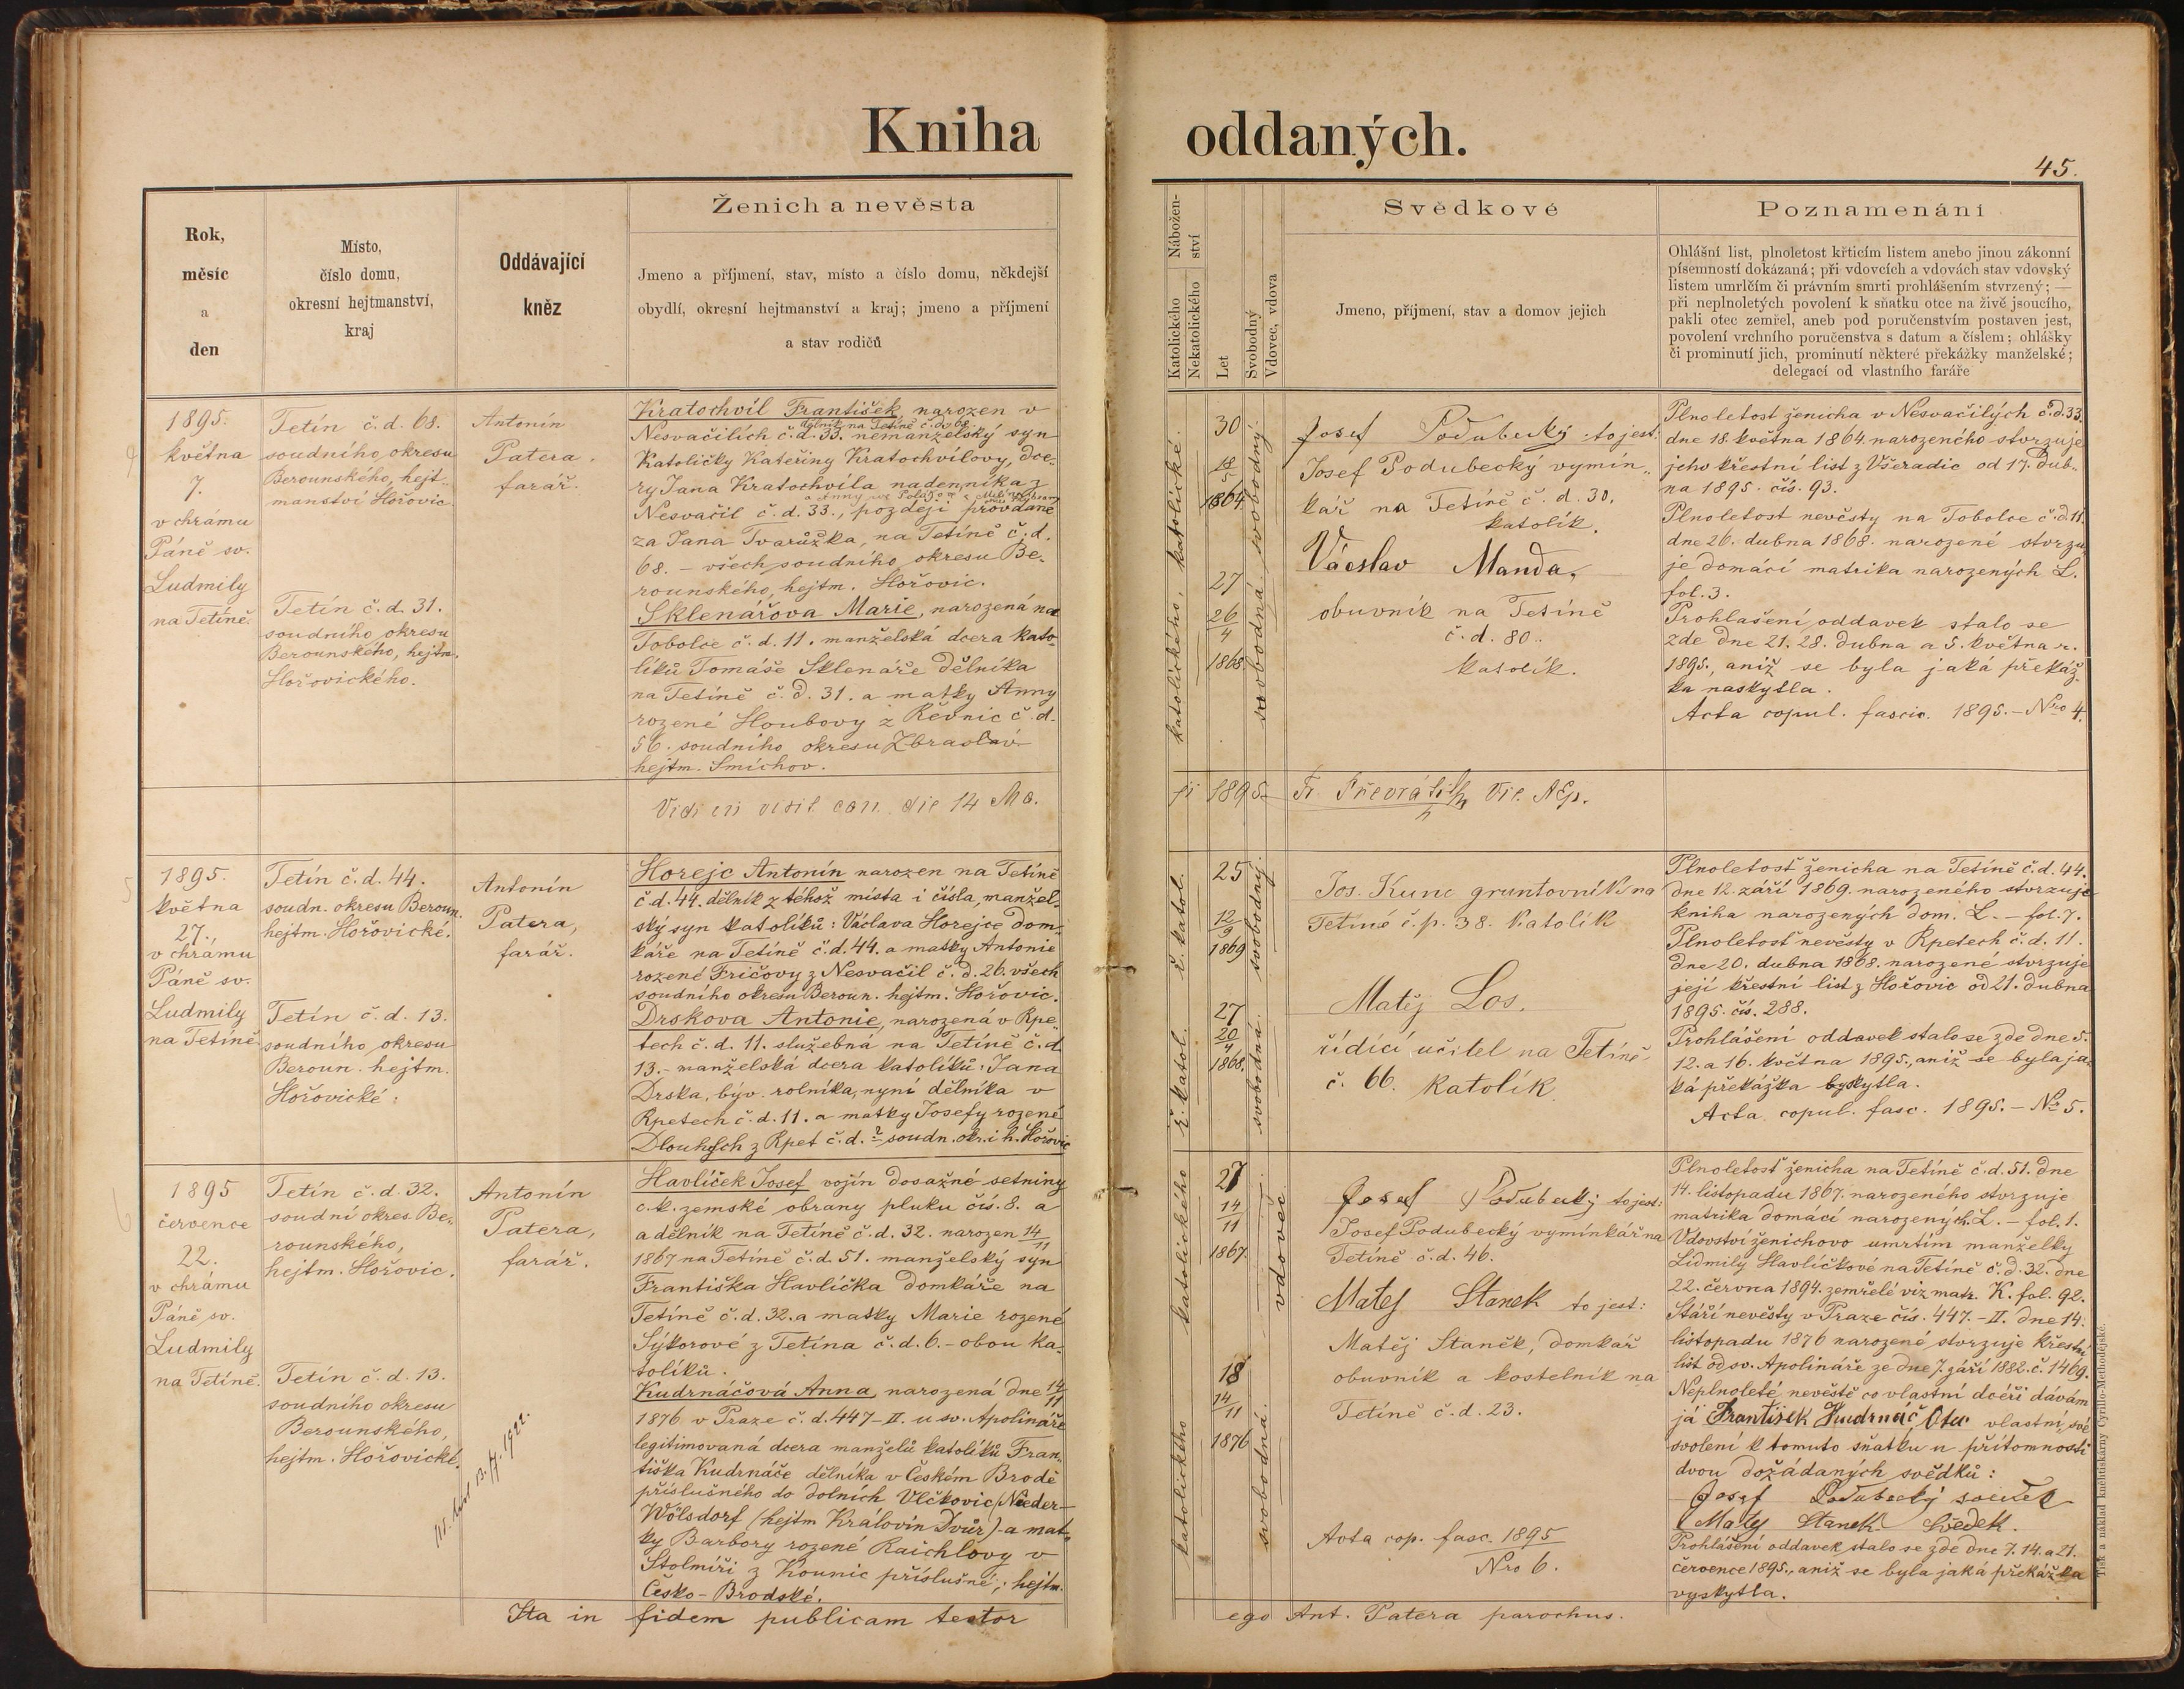 Kniha oddaných.
45.
Rok,
měsíc
a
den
Místo,
číslo domu,
okresní hejtmanství,
kraj
Oddávající
kněz
Ženich a nevěsta
Jmeno a příjmení, stav, místo a číslo domu, někdejší
obydlí, okresní hejtmanství a kraj; jmeno a příjmení
a stav rodičů
Nábožen-
ství
Katolického
Nekatolického
Let
Svobodný
Vdovec, vdova
Svědkové
Jmeno, příjmení, stav a domov jejich
Poznamenání
Ohlášní list, plnoletost křticím listem anebo jinou zákonní
písemností dokázaná; při vdovcích a vdovách stav vdovský
listem umrlčím či právním smrti prohlášením stvrzený; —
při neplnoletých povolení k sňatku otce na živě jsoucího,
pakli otec zemřel, aneb pod poručenstvím postaven jest,
povolení vrchního poručenstva s datum a číslem; ohlášky
či prominutí jich, prominutí některé překážky manželské;
delegací od vlastního faráře
1895.
května
7.
v chrámu
Páně sv.
Ludmily
na Tetíně.
Tetín č. d. 68.
soudního okresu
Berounského, hejt-
manství Hořovic.
Tetín č. d. 31.
soudního okresu
Berounského, hejtm.
Hořovického.
Antonín
Patera.
farář.
Kratochvíl František, narozen v
dělník na Tetíně č. d. 68.
Nesvačilích č. d. 33. nemanželský syn
Katoličky Kateřiny Kratochvílovy, dce-
ry Jana Kratochvíla nadenníka z
Nesvačil č. d. 33., později provdané
za Jana Tvarůžka, na Tetíně č. d.
68. – všech soudního okresu Be-
rounského, hejtm. Hořovic.
Sklenářova Marie, narozená na
Tobolce č. d. 11. manželská dcera kato-
líků Tomáše Sklenáře dělníka
na Tetíně č. d. 31. a matky Anny
rozené Houbovy z Řevnic č. d.
56. soudního okresu Zbraslav
hejtm. Smíchov.
katolického, katolické.
30
18/5
1864
27
26/4
1868
svobodná. svobodný.
Josef Podubecký to jest:
Josef Podubecký vymín-
kář na Tetíně č. d. 30.
katolík.
Václav Manda,
obuvník na Tetíně
č. d. 80.
katolík.
Plnoletost ženicha v Nesvačilých č. d. 33.
dne 18. května 1864 narozeného stvrzuje
jeho křestní list z Všeradic od 17. dub-
na 1895. čís. 93.
Plnoletost nevěsty na Tobolce č. d. 11.
dne 26. dubna 1868. narozené stvrzu-
je domácí matrika narozených L.
fol. 3.
Prohlašení oddavek stalo se
zde dne 21. 28. dubna a 5. května r.
1895., aniž se byla jaká překáž-
ka naskytla.
Acta copul. fascic. 1895. – Nro 4.
Vidi in visit can. die 14 Ma-
ji 1895. Fr. Převrátil Vic. AEp.
1895.
května
27.
v chrámu
Páně sv.
Ludmily
na Tetíně
Tetín č. d. 44.
soudn. okresu Beroun.
hejtm. Hořovické.
Tetín č. d. 13.
soudního okresu
Beroun. hejtm.
Hořovické.
Antonín
Patera,
farář.
Horejc Antonín narozen na Tetíně
č. d. 44. dělník z téhož místa i čísla, manžel-
ský syn katolíků: Václava Horejce dom-
káře na Tetíně č. d. 44. a matky Antonie
rozené Fričovy z Nesvačil č. d. 26. všech
soudního okresu Beroun. hejtm. Hořovic.
Drskova Antonie, narozená v Rpe-
tech č. d. 11. služebná na Tetíně č. d.
13. – manželská dcera katolíků: Jana
Drska, býv. rolníka, nyní dělníka v
Rpetech č. d. 11. a matky Josefy rozené
Dlouhých z Rpet č. d. ? soudn. okr. i h. Hořovic
ř. katol. ř. katol.
25
12/9
1869
27
20/4
1868.
svobodná. svobodný.
Jos. Kunc gruntovník na
Tetíně č. p. 38. katolík
Matěj Los,
řídící učitel na Tetíně
č. 66. katolík.
Plnoletosť ženicha na Tetíně č. d. 44.
dne 12. září 1869 narozeného stvrzuje
kniha narozených dom. L. – fol. 7.
Plnoletosť nevěsty v Rpetech č. d. 11.
dne 20. dubna 1868. narozené stvrzuje
její křestní list z Hořovic od 21. dubna
1895. čís. 288.
Prohlášení oddavek stalo se zde dne 5.
12. a 16. května 1895., aniž se byla ja-
ká překážka byskytla.
Acta copul. fasc. 1895. – No 5.
1895
července
22.
v chrámu
Páně sv.
Ludmily
na Tetíně.
Tetín č. d. 32.
soudní okres Be-
rounského,
hejtm. Hořovic.
Tetín č. d. 13.
soudního okresu
Berounského,
hejtm. Hořovické.
Antonín
Patera,
farář.
Havlíček Josef vojín dosažné setniny
c. k. zemské obrany pluku čís. 8. a
a dělník na Tetíně č. d. 32. narozen 14/11
1867 na Tetíně č. d. 51. manželský syn
Františka Havlíčka domkáře na
Tetíně č. d. 32. a matky Marie rozené
Sýkorové z Tetína č. d. 6. – obou ka-
tolíků.
Kudrnáčová Anna, narozená dne 14/11
1876 v Praze č. d. 447–II. u sv. Apolináře
legitimovaná dcera manželů katolíků Fran-
tiška Kudrnáče dělníka v Českém Brodě
příslušného do dolních Vlčkovic (Nieder-
Wölsdorf (hejtm Královin Dvůr) a mat-
ky Barbory rozené Raichlovy v
Štolmíři z Kounic příslušné, hejtm.
Česko-Brodské.
katolického katolického
27
14/11
1867
18
14/11
1876
svobodná. vdovec
Josef Podubecký to jest:
Josef Podubecký vymínkář na
Tetíně č. d. 46.
Matej Stanek to jest:
Matěj Staněk, domkář
obuvník a kostelník na
Tetíně č. d. 23.
Acta cop. fasc. 1895
Nro 6.
Plnoletosť ženicha na Tetíně č. d. 51. dne
14. listopadu 1867. narozeného stvrzuje
matrika domácí narozených L. – fol. 1.
Vdovství ženichovo umrtím manželky
Lidmily Havlíčkové na Tetíně č. d. 32. dne
22. června 1894. zemřelé viz matr. K. fol. 92.
Stáří nevěsty v Praze čís. 447. – II. dne 14.
listopadu 1876 narozené stvrzuje křestní
list od sv. Apolináře ze dne 7. září 1882. č. 1469.
Neplnoleté nevěstě co vlastní dceři dávám
já František Kudrnáč, Otec vlastní, své
svolení k tomuto sňatku u přítomnosti
dvou dožádaných svědků:
Josef Podubecký soudek
Matej Stanek Svedek.
Prohlášení oddavek stalo se zde dne 7. 14. a 21.
července 1895., aniž se byla jaká překážka
vyskytla.
Ita in fidem publicam testor
ego Ant. Patera parochus.
Tisk a náklad knihtiskárny Cyrillo-Methodějské.